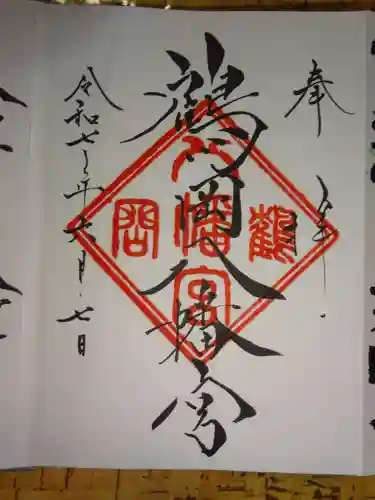 奉拝
鶴岡八幡宮
鶴
八幡宮
岡
令和七年六月七日